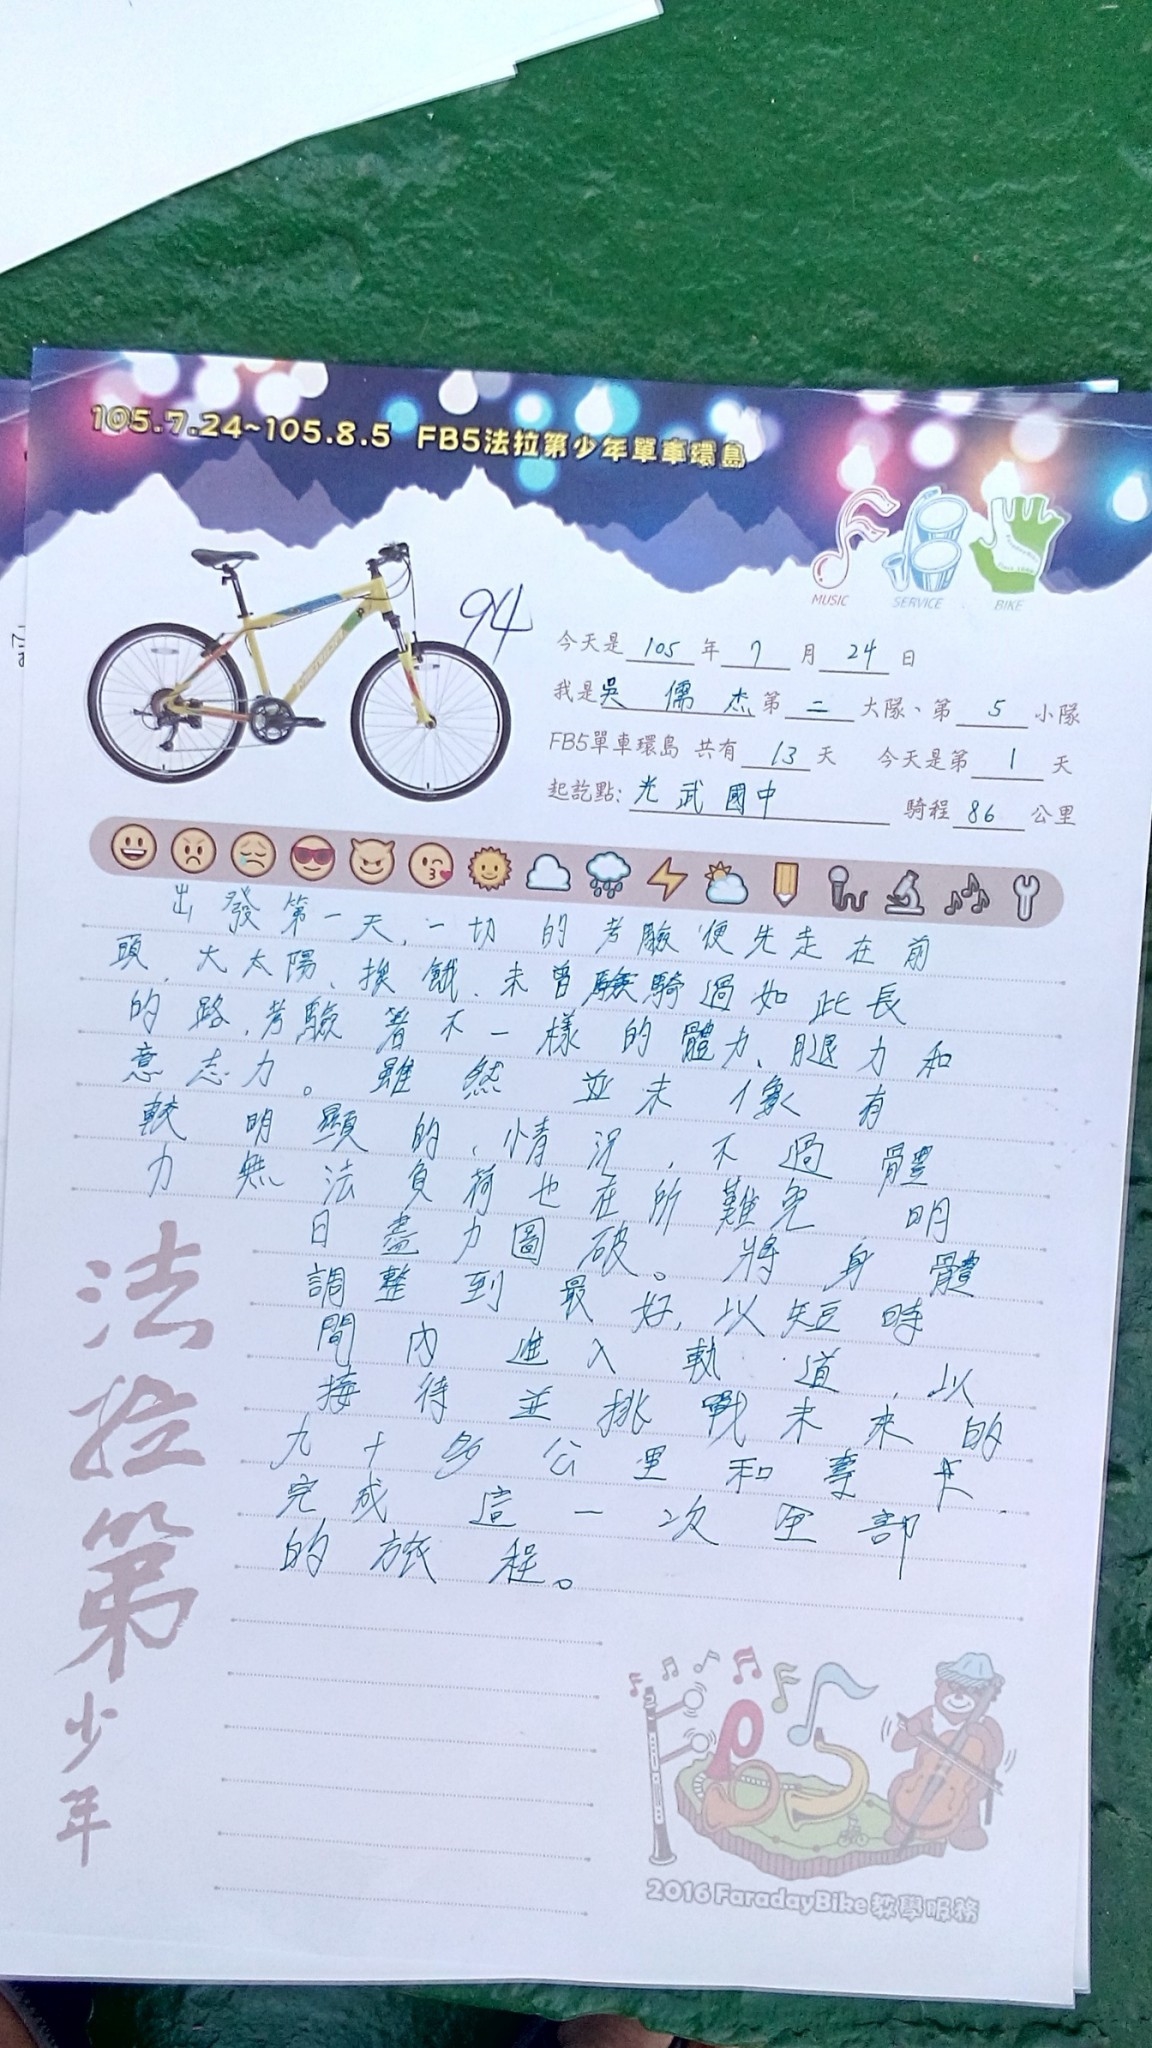 105.7.24~105.8.5 FB5法拉第少年單車環島
MUSIC SERVICE BIKE
94
今天是 105 年 7 月 24 日
我是 吳儒杰 第 二 大隊、第 5 小隊
FB5單車環島 共有 13 天 今天是第 1 天
起訖點: 光武國中 騎程 86 公里
出發第一天,一切的考驗便先走在前
頭,大太陽、挨餓、未曾騎過如此長
的路,考驗著不一樣的體力、腿力和
意志力。雖然並未像有
較明顯的,情況,不過體
力無法負荷也在所難免 明
日盡力圖破。將身體
調整到最好,以短時
間內進入軌道,以
接待並挑戰未來的
九十多公里和壽卡
完成這一次全部
的旅程。
法拉第少年
2016 FaradayBike 教學服務